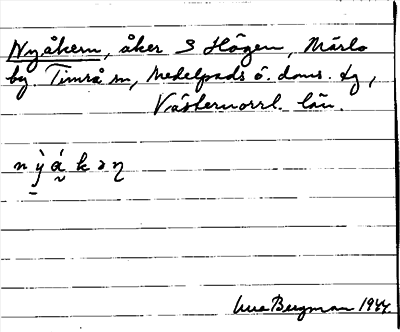 Nyåkern, åker S Högen, Märlo
by. Timrå sn, Medelpads ö. doms. tg,
Västernorrl. län.
n ỳ̠ á̰ k ə ŋ
Bergman 1944.